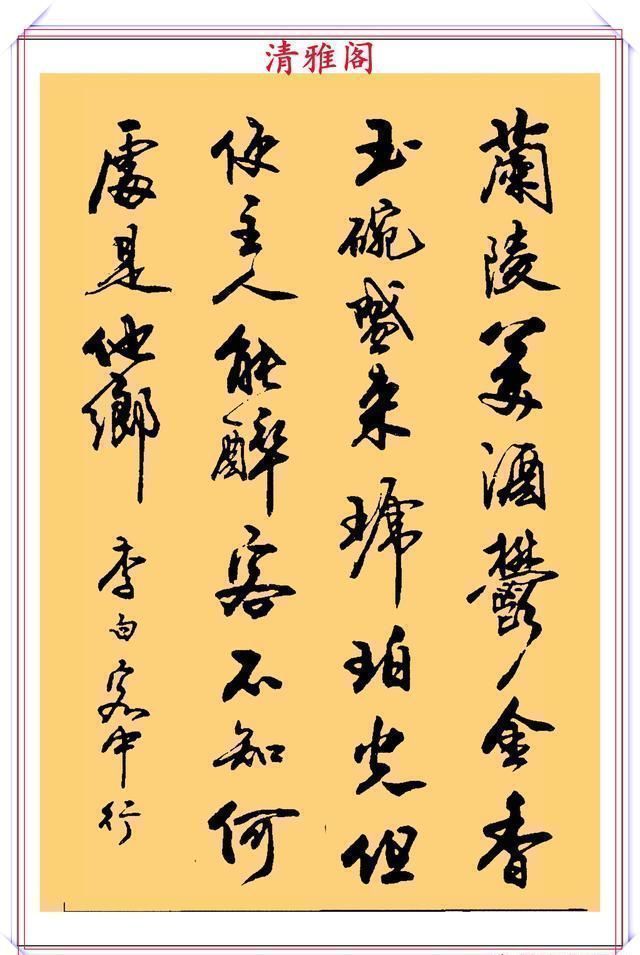 清雅阁
蘭陵美酒鬱金香
玉碗盛来琥珀光但
使主人能醉客不知何
處是他鄉
李白客中行